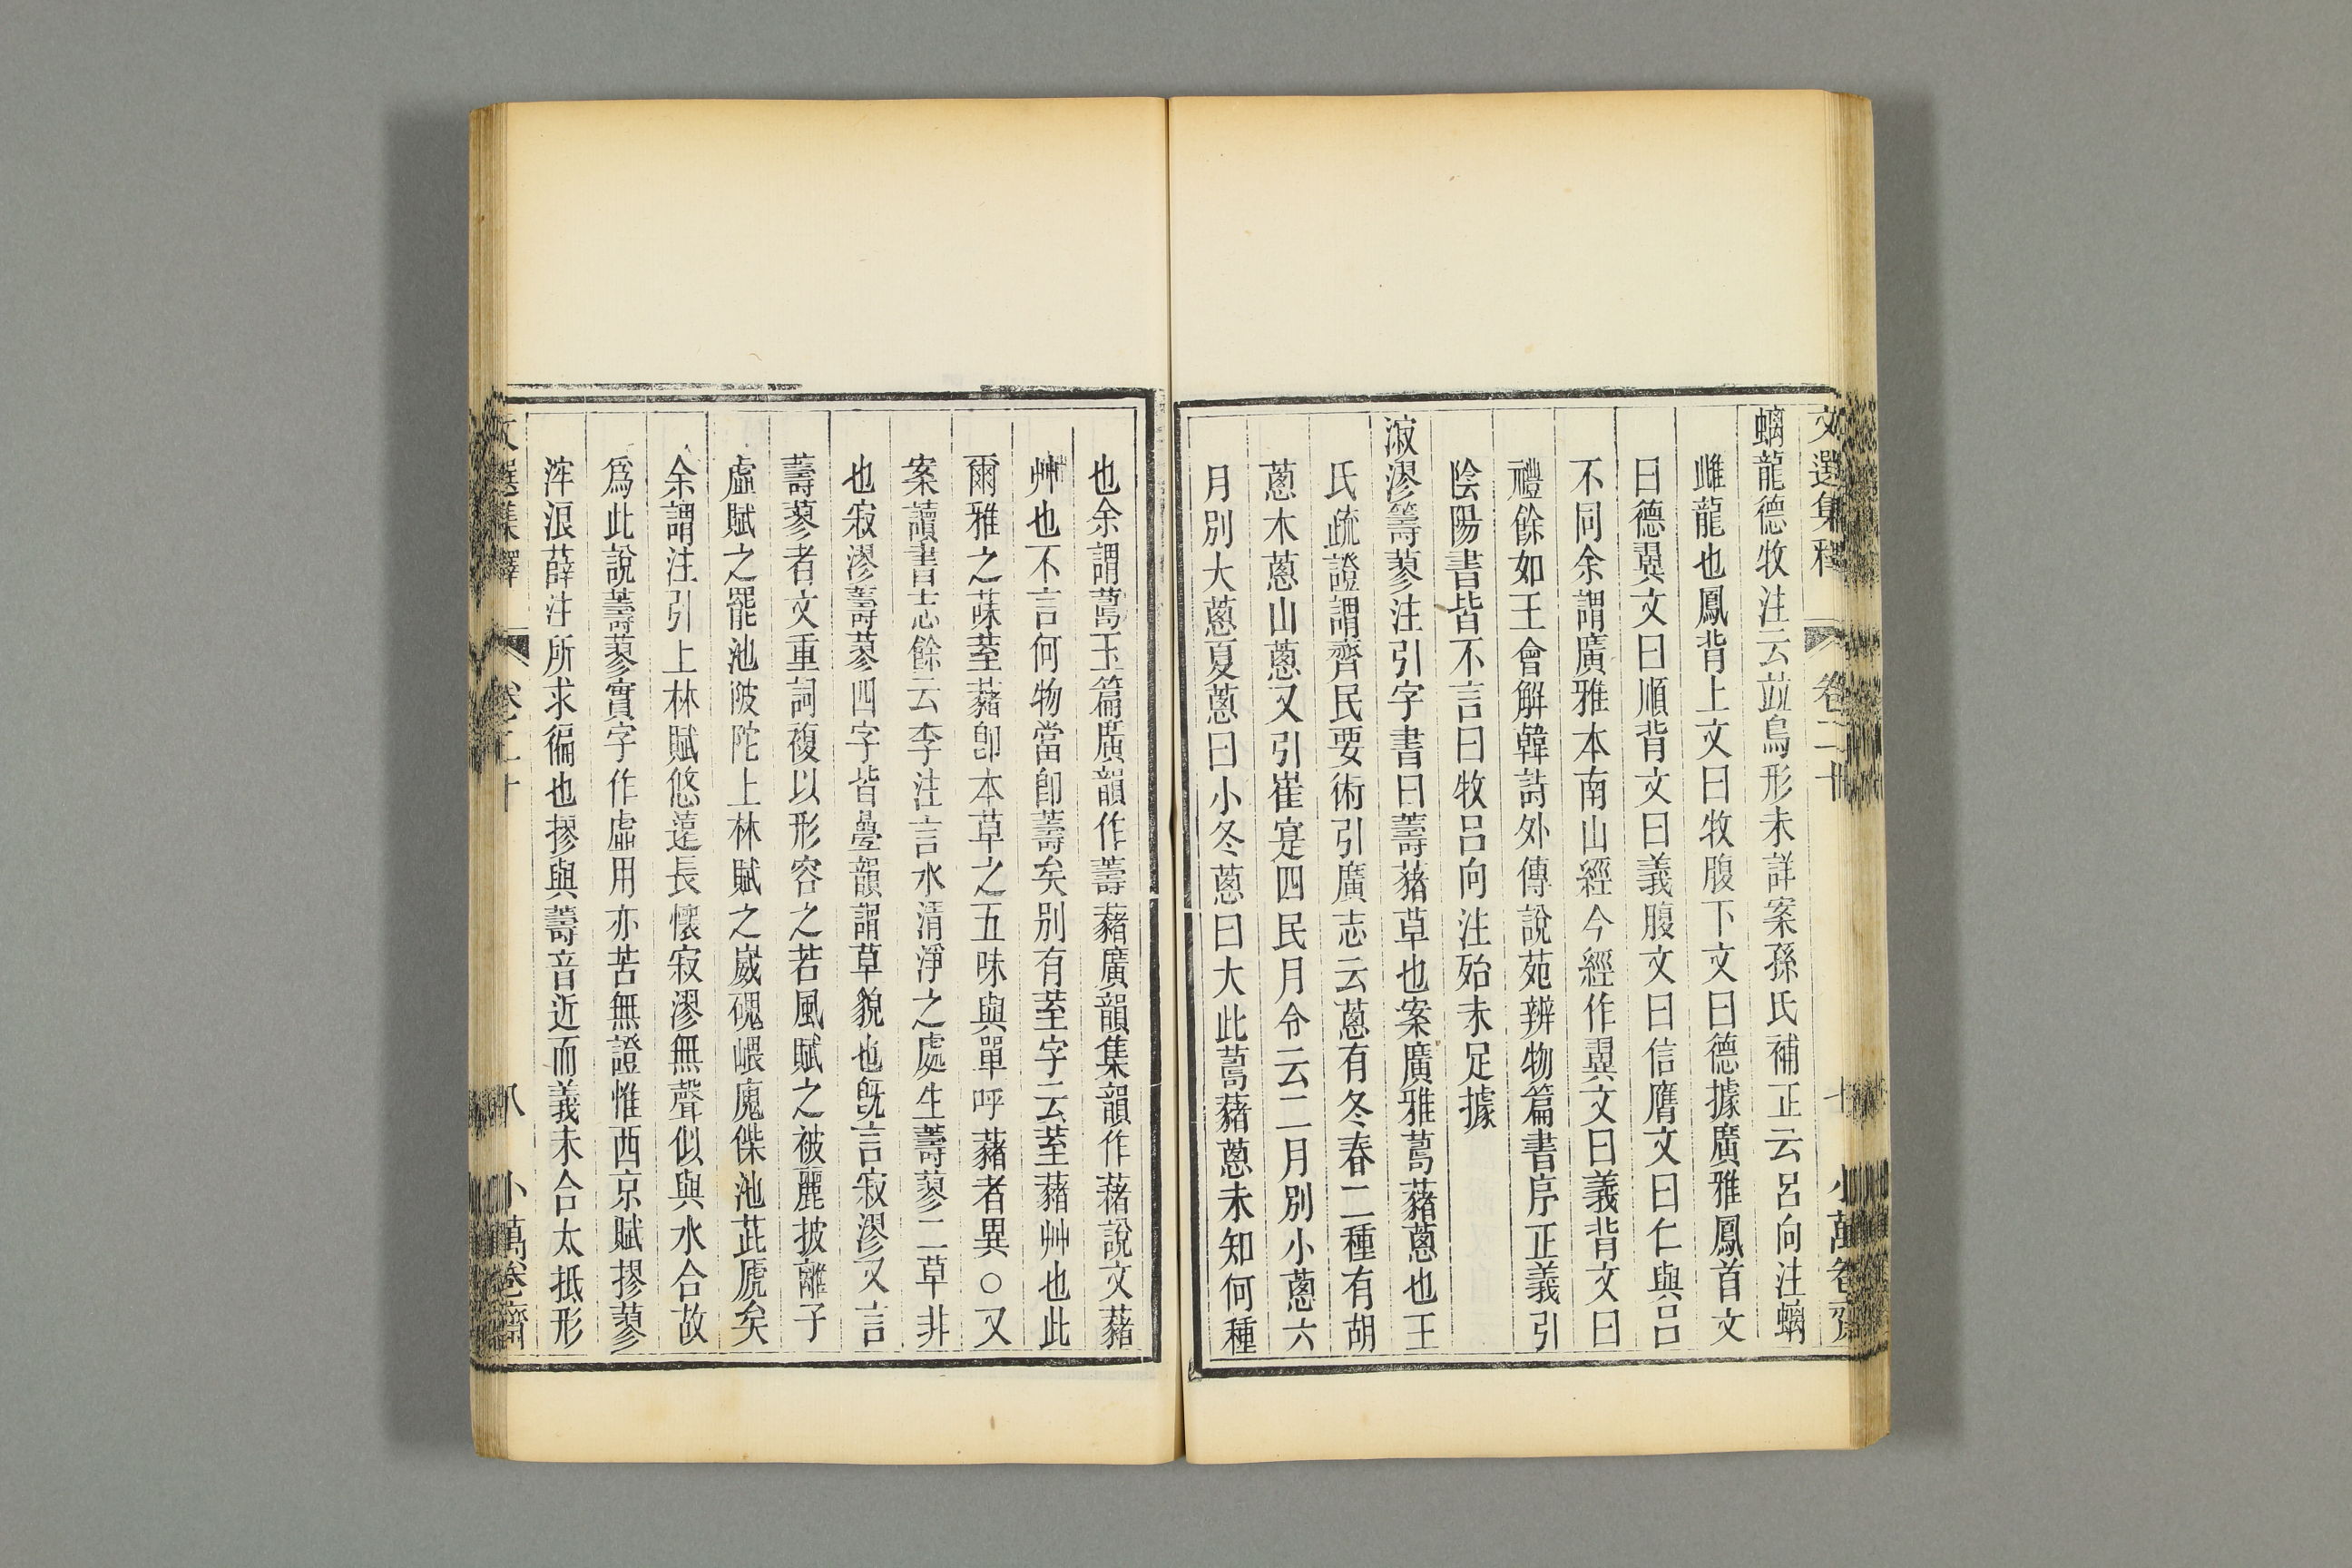 文選集釋 卷二十 十 小萬卷齋
螭龍德牧注云竝鳥形未詳案孫氏補正云呂向注螭
雌龍也鳳背上文曰牧腹下文曰德據廣雅鳳首文
曰德翼文曰順背文曰義腹文曰信膺文曰仁與呂
不同余謂廣雅本南山經今經作翼文曰義背文曰
禮餘如王會解韓詩外傳說苑辨物篇書序正義引
陰陽書皆不言曰牧呂向注殆未足據
漃漻薵蓼注引字書曰薵藸草也案廣雅藒藸蔥也王
氏疏證謂齊民要術引廣志云蔥有冬春二種有胡
蔥木蔥山蔥又引崔寔四民月令云二月別小蔥六
月別大蔥夏蔥曰小冬蔥曰大此藒藸蔥未知何種
也余謂藒玉篇廣韻作薵藸廣韻集韻作藸說文藸
艸也不言何物當卽薵矣別有荎字云荎藸艸也此
爾雅之菋荎藸卽本草之五味與單呼藸者異○又
案讀書志餘云李注言水清淨之處生薵蓼二草非
也寂漻薵蓼四字皆疊韻謂草貌也旣言寂漻又言
薵蓼者文重詞複以形容之若風賦之被麗披離子
虛賦之罷池陂陀上林賦之崴磈嵔廆傑池茈虒矣
余謂注引上林賦悠遠長懷寂漻無聲似與水合故
爲此說薵蓼實字作虛用亦苦無證惟西京賦摎蓼
浶浪薛注所求徧也摎與薵音近而義未合太抵形
文選集釋 卷二十 八 小萬卷齋